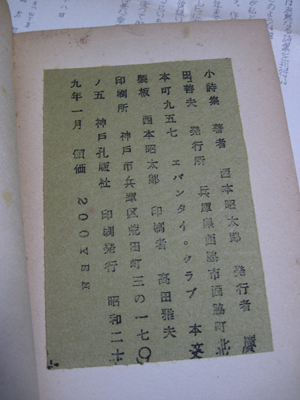 小詩集 著者 西本昭太郎 発行者 廣
田善夫 発行所 兵庫県西脇市西脇町北
本町九五七 エバンタイ・クラブ 本文
製板 西本昭太郎 印刷者 高田雅夫
印刷所 神戸市兵庫区荒田町三の一七〇
ノ五 神戸孔版社 印刷発行 昭和二十
九年一月 頒価 200YEN